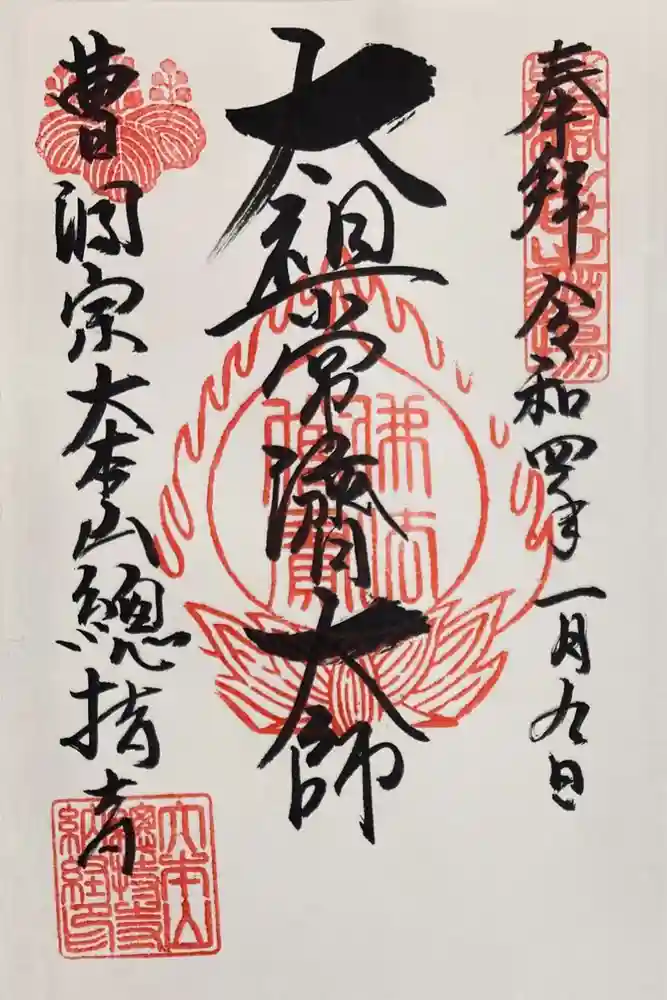 奉拝 令和四年一月九日
太祖常濟大師
曹洞宗大本山總持寺
佛法
僧寶
大本山
總持寺
納経印